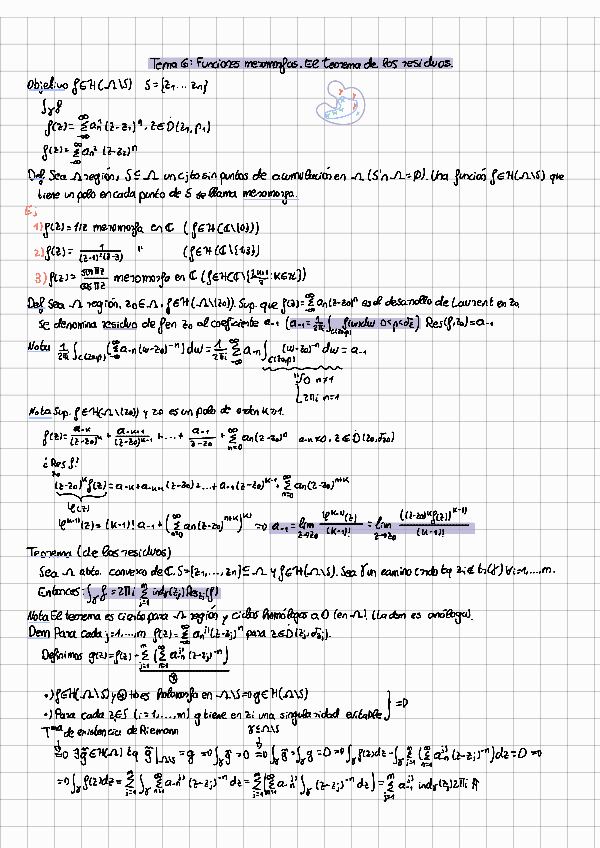 Tema 6: Funciones meromorfas. El teorema de los residuos.
Objetivo f∈H(Ω\S) S={z₁...zₙ}
∫γ f
f(z)=Σ_{-∞}^{∞} aₙ¹(z-z₁)ⁿ, z∈D(z₁,ρ₁)
f(z)=Σ_{-∞}^{∞} aₙ²(z-z₂)ⁿ
Def Sea Ω región, S⊆Ω un cjto sin puntos de acumulación en Ω (S'∩Ω=∅). Una función f∈H(Ω\S) que
tiene un polo en cada punto de S se llama meromorfa.
Ej
1) f(z)=1/z meromorfa en ℂ (f∈H(ℂ\{0}))
2) f(z)= 1/((z-1)²(z-3)) " (f∈H(ℂ\{1,3})
3) f(z)= sen πz / cos πz meromorfa en ℂ (f∈H(ℂ\{(2k+1)/2 : k∈ℤ})
Def Sea Ω región, z₀∈Ω, f∈H(Ω\{z₀}). Sup. que f(z)=Σ_{-∞}^{∞} aₙ(z-z₀)ⁿ es el desarrollo de Laurent en z₀.
Se denomina residuo de f en z₀ al coeficiente a₋₁ (a₋₁=1/2πi ∫_{C(z₀,ρ)} f(w)dw 0<ρ<δz₀) Res(f,z₀)=a₋₁
Nota 1/2πi ∫_{C(z₀,ρ)} (Σ_{-∞}^{∞} a₋ₙ(w-z₀)⁻ⁿ)dw = 1/2πi Σ_{-∞}^{∞} a₋ₙ ∫_{C(z₀,ρ)} (w-z₀)⁻ⁿ dw = a₋₁
{0 n≠1
{2πi n=1
Nota Sup. f∈H(Ω\{z₀}) y z₀ es un polo de orden k≥1.
f(z)= a₋ₖ/(z-z₀)ᵏ + a₋ₖ₊₁/(z-z₀)ᵏ⁻¹ + ... + a₋₁/(z-z₀) + Σ_{n=0}^{∞} aₙ(z-z₀)ⁿ a₋ₖ≠0, z∈D(z₀,δz₀)
¿Res f?
z₀
(z-z₀)ᵏ f(z) = a₋ₖ+a₋ₖ₊₁(z-z₀)+...+a₋₁(z-z₀)ᵏ⁻¹+Σ_{n=0}^{∞} aₙ(z-z₀)ⁿ⁺ᵏ
φ(z)
φ⁽ᵏ⁻¹⁾(z)=(k-1)! a₋₁+(Σ_{n=0}^{∞} aₙ(z-z₀)ⁿ⁺ᵏ)⁽ᵏ⁻¹⁾ => a₋₁= lim_{z→z₀} φ⁽ᵏ⁻¹⁾(z)/(k-1)! = lim_{z→z₀} ((z-z₀)ᵏf(z))⁽ᵏ⁻¹⁾/(k-1)!
Teorema (de los residuos)
Sea Ω abto. convexo de ℂ. S={z₁,...,zₘ}⊆Ω y f∈H(Ω\S). Sea γ un camino cerrado tq zᵢ∉tr(γ) ∀i=1,...,m.
Entonces: ∫γ f = 2πi Σ_{j=1}^{m} indγ(zⱼ) Res_{zⱼ}(f)
Nota El teorema es cierto para Ω región y ciclos homólogos a 0 (en Ω). (La dem es análoga).
Dem Para cada j=1,...,m f(z)=Σ_{-∞}^{∞} aₙʲ(z-zⱼ)ⁿ para z∈D(zⱼ,δzⱼ).
Definimos g(z)=f(z)-Σ_{j=1}^{m}(Σ_{n=1}^{∞} a₋ₙʲ(z-zⱼ)⁻ⁿ)
⊛
•) f∈H(Ω\S) y ⊛ es holomorfa en Ω\S => g∈H(Ω\S)
•) Para cada zᵢ∈S (i=1,...,m) g tiene en zᵢ una singularidad evitable } =>
Tᵐᵃ de existencia de Riemann γ⊆Ω\S
=> ∃ĝ∈H(Ω) tq ĝ|_{Ω\S}=g => ∫γ ĝ=0 => ∫γ ĝ=∫γ g=0 => ∫γ f(z)dz-∫γ Σ_{j=1}^{m}(Σ_{n=1}^{∞} a₋ₙʲ(z-zⱼ)⁻ⁿ)dz=0 =>
=> ∫γ f(z)dz=Σ_{j=1}^{m} ∫γ Σ_{n=1}^{∞} a₋ₙʲ(z-zⱼ)⁻ⁿ dz=Σ_{j=1}^{m}(Σ_{n=1}^{∞} a₋ₙʲ ∫γ (z-zⱼ)⁻ⁿ dz)=Σ_{j=1}^{m} a₋₁ʲ indγ(zⱼ)2πi